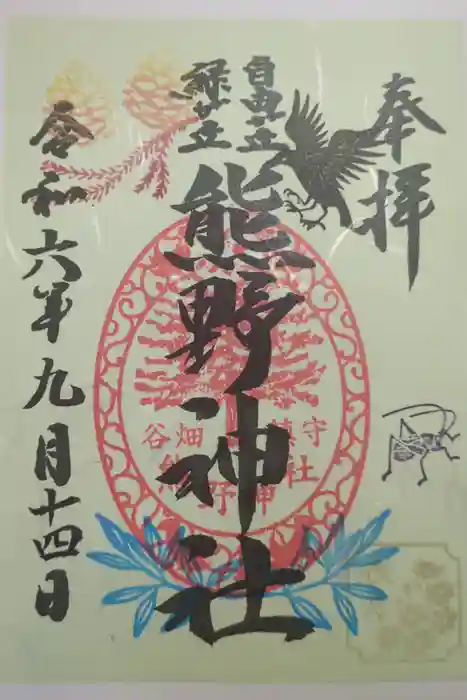 奉拝
自由丘
緑が丘
熊野神社
谷畑 鎮守
熊野神社
令和六年九月十四日